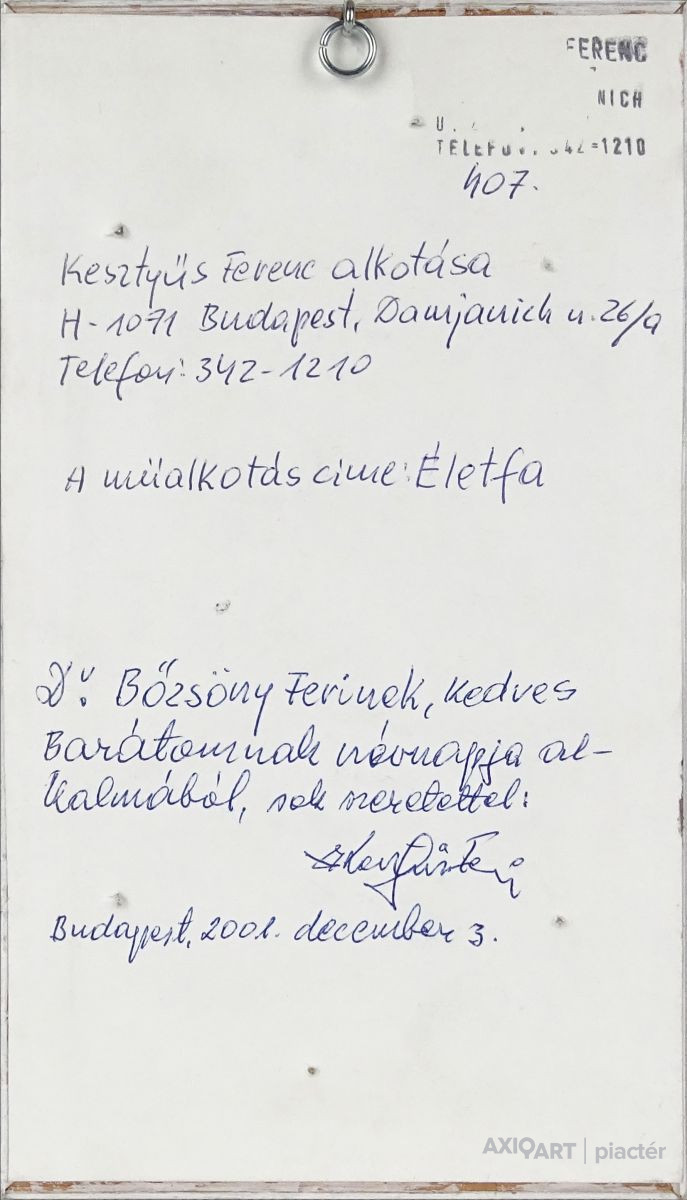 FERENC
NICH
U.
TELEFON: 342-1210
407.
Kesztyűs Ferenc alkotása
H-1071 Budapest, Damjanich u. 26/a
Telefon: 342-1210
A műalkotás címe: Életfa
Dr. Bőzsöny Ferinek, kedves
Barátomnak névnapja al-
kalmából, sok szeretettel:
Budapest, 2001. december 3.
AXIOART | piactér